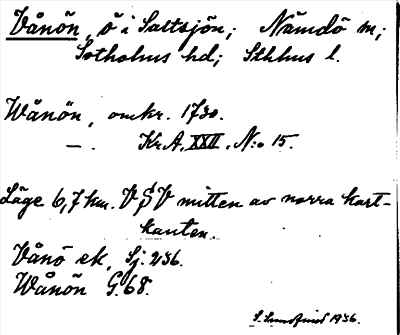 Vånön, ö i Saltsjön; Nämdö sn;
Sotholms hd; Sthlms l.
Wånön, omkr. 1730.
—. Kr.A. XXII. N:o 15.
Läge 6,7 km. VSV mitten av norra kart-
kanten.
Vånö ek, Sj. 236.
Wånön G. 68.
1936.